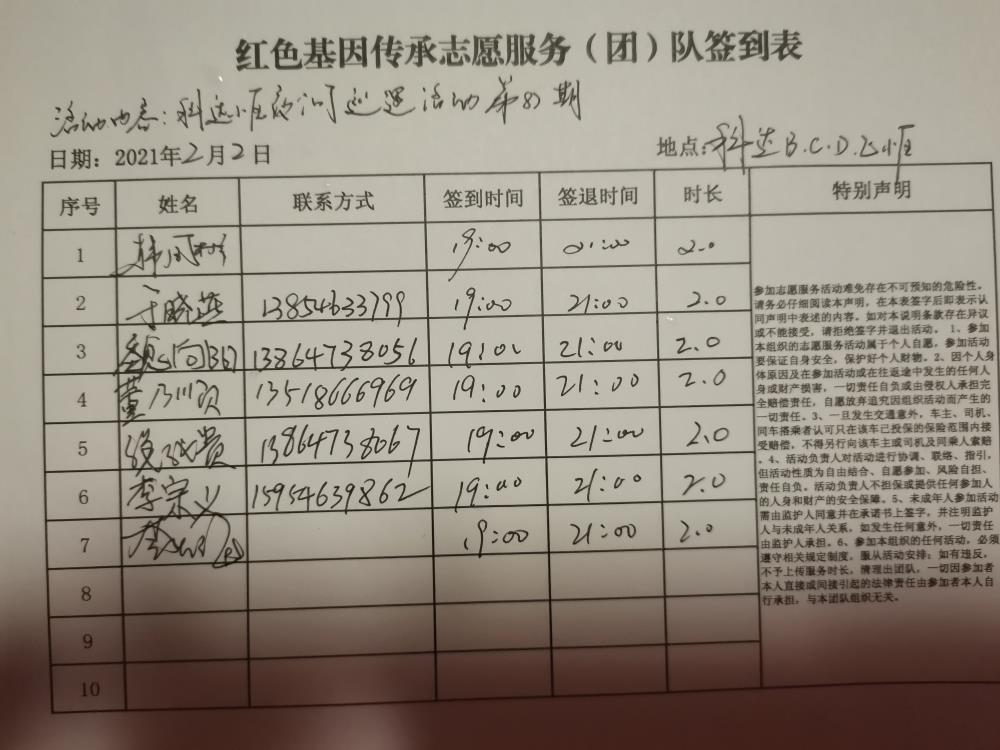 红色基因传承志愿服务（团）队签到表
活动内容：科达小区夜间巡逻活动第87期
日期：2021年2月2日
地点：科达B.C.D.E小区
序号 姓名 联系方式 签到时间 签退时间 时长 特别声明
1 19:00 21:00 2.0
2 于晓燕 13854633799 19:00 21:00 2.0
3 13864738056 19:00 21:00 2.0
4 董 13518666969 19:00 21:00 2.0
5 13864738067 19:00 21:00 2.0
6 李宗义 15954639862 19:00 21:00 2.0
7 19:00 21:00 2.0
8
9
10
参加志愿服务活动难免存在不可预知的危险性。
请务必仔细阅读本声明，在本表签字后即表示认
同声明中表述的内容。如对本说明条款存在异议
或不能接受，请拒绝签字并退出活动。 1、参加
本组织的志愿服务活动属于个人自愿，参加活动
要保证自身安全，保护好个人财物。2、因个人身
体原因及在参加活动或在往返途中发生的任何人
身或财产损害，一切责任自负或由侵权人承担完
全赔偿责任，自愿放弃追究因组织活动而产生的
一切责任。3、一旦发生交通意外，车主、司机、
同车搭乘者认可只在该车已投保的保险范围内接
受赔偿，不得另行向该车主或司机及同乘人索赔
。4、活动负责人对活动进行协调、联络、指引，
但活动性质为自由结合、自愿参加、风险自担、
责任自负。活动负责人不担保或提供任何参加人
的人身和财产的安全保障。5、未成年人参加活动
需由监护人同意并在承诺书上签字，并注明监护
人与未成年人关系，如发生任何意外，一切责任
由监护人承担。6、参加本组织的任何活动，必须
遵守相关规定制度，服从活动安排；如有违反，
不予上传服务时长，清理出团队，一切因参加者
本人直接或间接引起的法律责任由参加者本人自
行承担，与本团队组织无关。